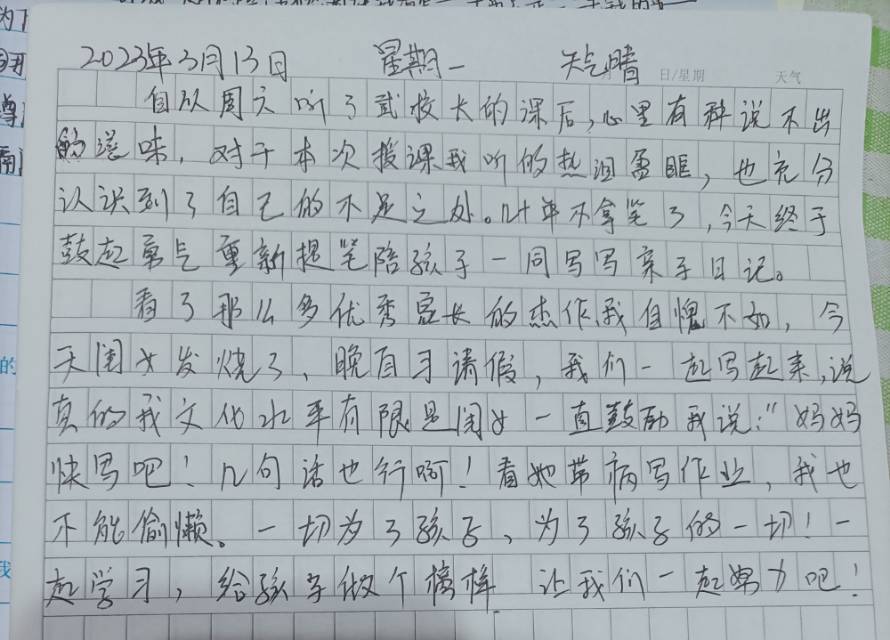 2023年3月13日 星期一 天气晴
日/星期 天气
自从周六听了武校长的课后,心里有种说不出
的滋味,对于本次授课我听的热泪盈眶,也充分
认识到了自己的不足之处。几十年不拿笔了,今天终于
鼓起勇气重新提笔陪孩子一同写写亲子日记。
看了那么多优秀家长的杰作,我自愧不如,今
天闺女发烧了、晚自习请假,我们一起写起来,说
真的我文化水平有限是闺女一直鼓励我说:"妈妈
快写吧!几句话也行啊!看她带病写作业,我也
不能偷懒。一切为了孩子,为了孩子的一切!一
起学习,给孩子做个榜样 让我们一起努力吧!